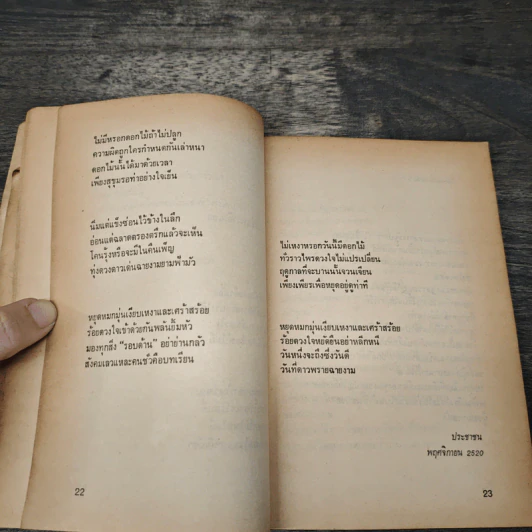 ไม่มีหรอกดอกไม้ถ้าไม่ปลูก
ความผิดถูกใครกำหนดกันเล่าหนา
ดอกไม้นั้นได้มาด้วยเวลา
เพียงสุขุมรอท่าอย่างใจเย็น
นิ่มแต่แข็งซ่อนไว้ข้างในลึก
อ่อนแต่ฉลาดตรองตรึกแล้วจะเห็น
โคนรุ้งหรือจะมีในคืนเพ็ญ
ทุ่งดวงดาวเด่นฉายงามยามฟ้ามัว
หยุดหมกมุ่นเงียบเหงาและเศร้าสร้อย
ร้อยดวงใจเข้าด้วยกันพลันยิ้มหัว
มองทุกสิ่ง "รอบด้าน" อย่าย่านกลัว
สังคมเลวแหละคนชั่วคือบทเรียน
22
ไม่เหงาหรอกวันนี้มีดอกไม้
ทั่วราวไพรดวงใจไม่แปรเปลี่ยน
ฤดูกาลที่จะบานนั้นจวนเจียน
เพี้ยงเพียรเพื่อหยุดอยู่ดูท่าที
หยุดหมกมุ่นเงียบเหงาและเศร้าสร้อย
ร้อยดวงใจหยัดยืนอย่าหลีกหนี
วันหนึ่งจะถึงซึ่งวันดี
วันที่ดาวพรายฉายงาม
ประชาชน
พฤศจิกายน 2520
23